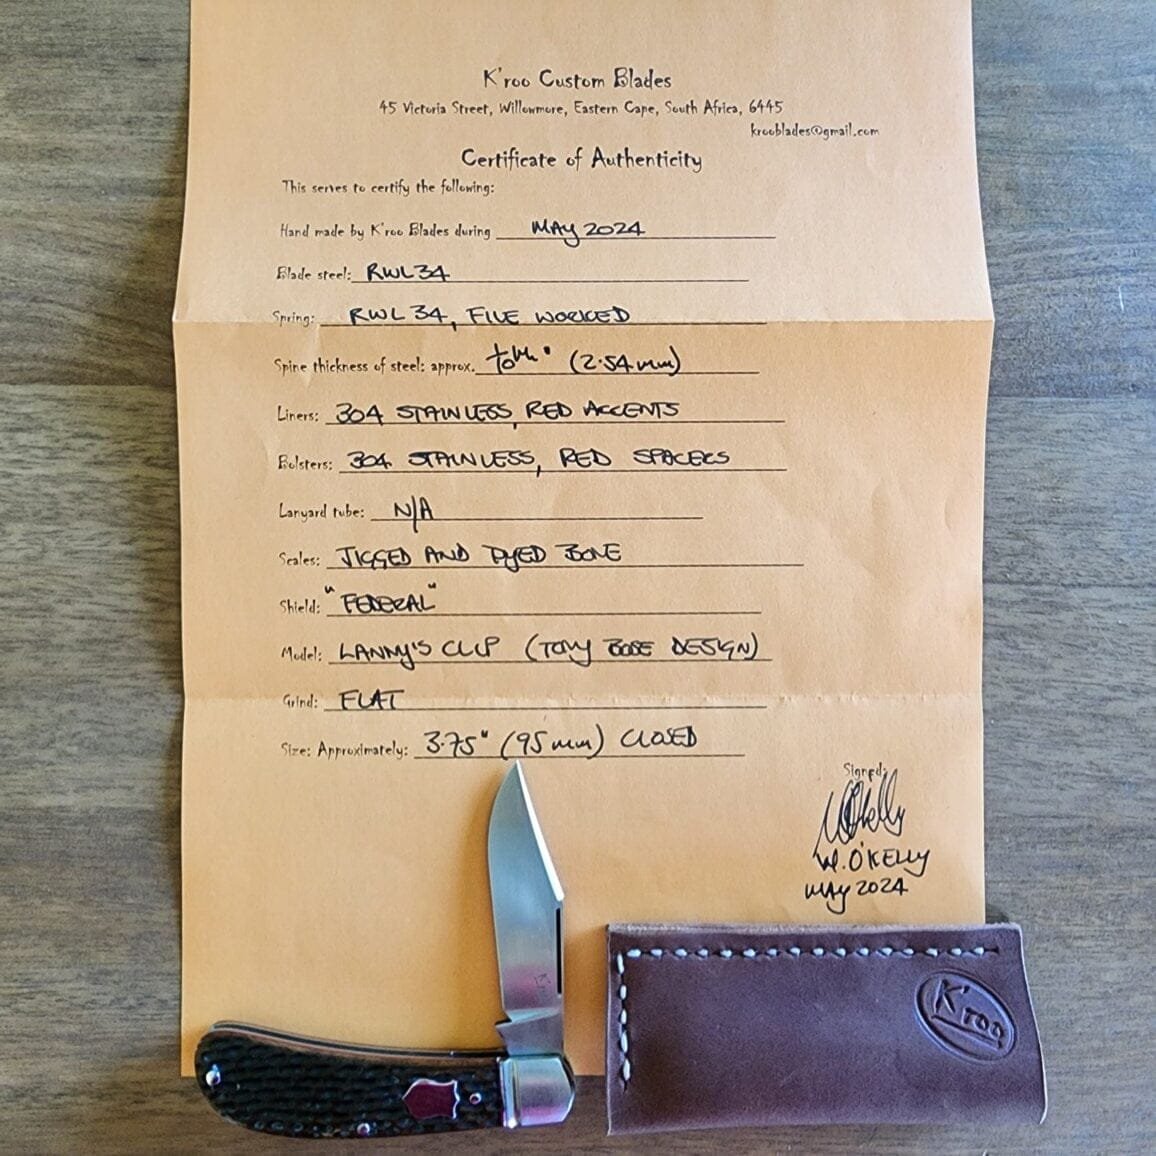 K'roo Custom Blades
45 Victoria Street, Willowmore, Eastern Cape, South Africa, 6445
krooblades@gmail.com
Certificate of Authenticity
This serves to certify the following:
Hand made by K'roo Blades during MAY 2024
Blade steel: RWL34
Spring: RWL 34, FILE WORKED
Spine thickness of steel: approx. (2.54mm)
Liners: 304 STAINLESS, RED ACCENTS
Bolsters: 304 STAINLESS, RED SPACERS
Lanyard tube: N/A
Scales: JIGGED AND DYED BONE
Shield: "FEDERAL"
Model: LANNY'S CLIP (TONY BOSE DESIGN)
Grind: FLAT
Size: Approximately: 3.75" (95mm) CLOSED
Signed:
W. O'KELLY
MAY 2024
K'roo